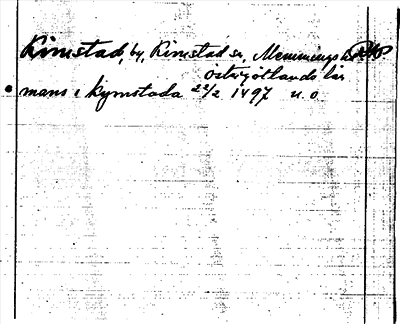 Rimstad, by, Rimstad sn, Memmings hd
Östergötlands län
mans i Rymstada 22/2 1497 u. o.